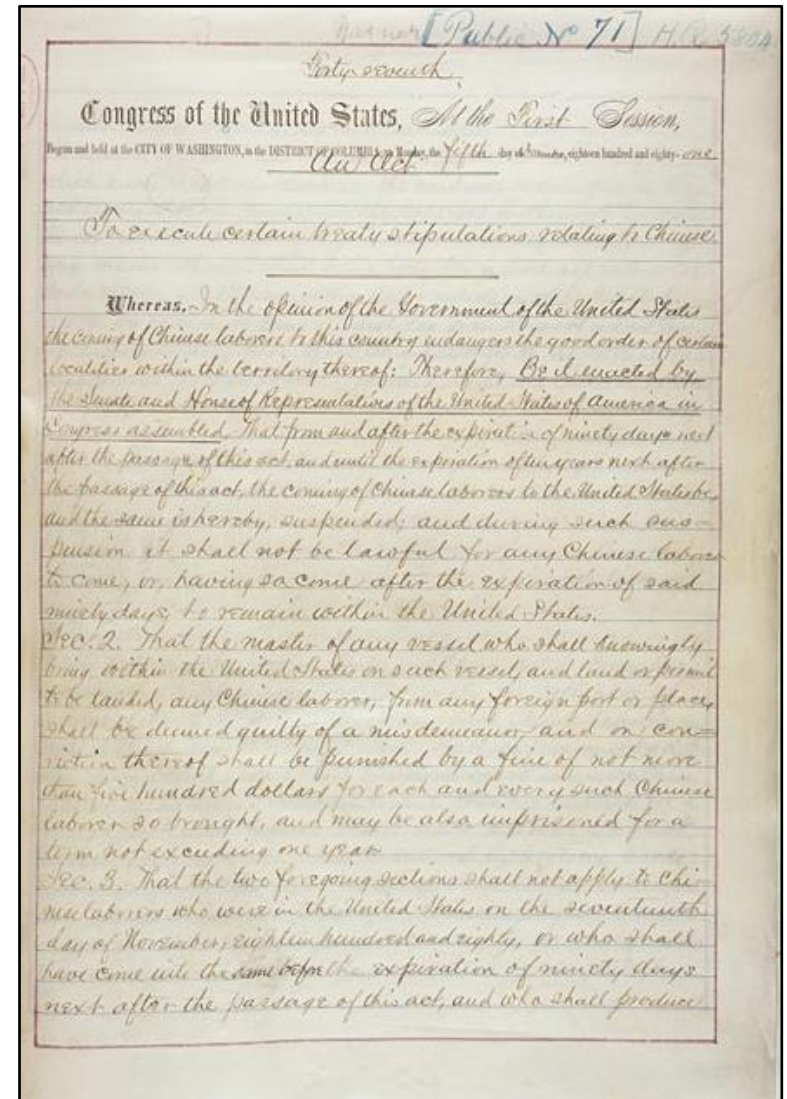 Warner [Public No 71] H. R. 5804
Forty-seventh
Congress of the United States, At the First Session,
Begun and held at the CITY OF WASHINGTON, in the DISTRICT OF COLUMBIA, on Monday, the fifth day of December, eighteen hundred and eighty-one
An Act
To execute certain treaty stipulations relating to Chinese.
Whereas, In the opinion of the Government of the United States
the coming of Chinese laborers to this country endangers the good order of certain
localities within the territory thereof: Therefore, Be it enacted by
the Senate and House of Representatives of the United States of America in
Congress assembled, That from and after the expiration of ninety days next
after the passage of this act, and until the expiration of ten years next after
the passage of this act, the coming of Chinese laborers to the United States be,
and the same is hereby, suspended; and during such sus-
pension it shall not be lawful for any Chinese laborer
to come, or, having so come after the expiration of said
ninety days, to remain within the United States.
Sec. 2. That the master of any vessel who shall knowingly
bring within the United States on such vessel, and land or permit
to be landed, any Chinese laborer, from any foreign port or place,
shall be deemed guilty of a misdemeanor, and on con=
viction thereof shall be punished by a fine of not more
than five hundred dollars for each and every such Chinese
laborer so brought, and may be also imprisoned for a
term not exceeding one year.
Sec. 3. That the two foregoing sections shall not apply to Chi-
nese laborers who were in the United States on the seventeenth
day of November, eighteen hundred and eighty, or who shall
have come into the same before the expiration of ninety days
next after the passage of this act, and who shall produce